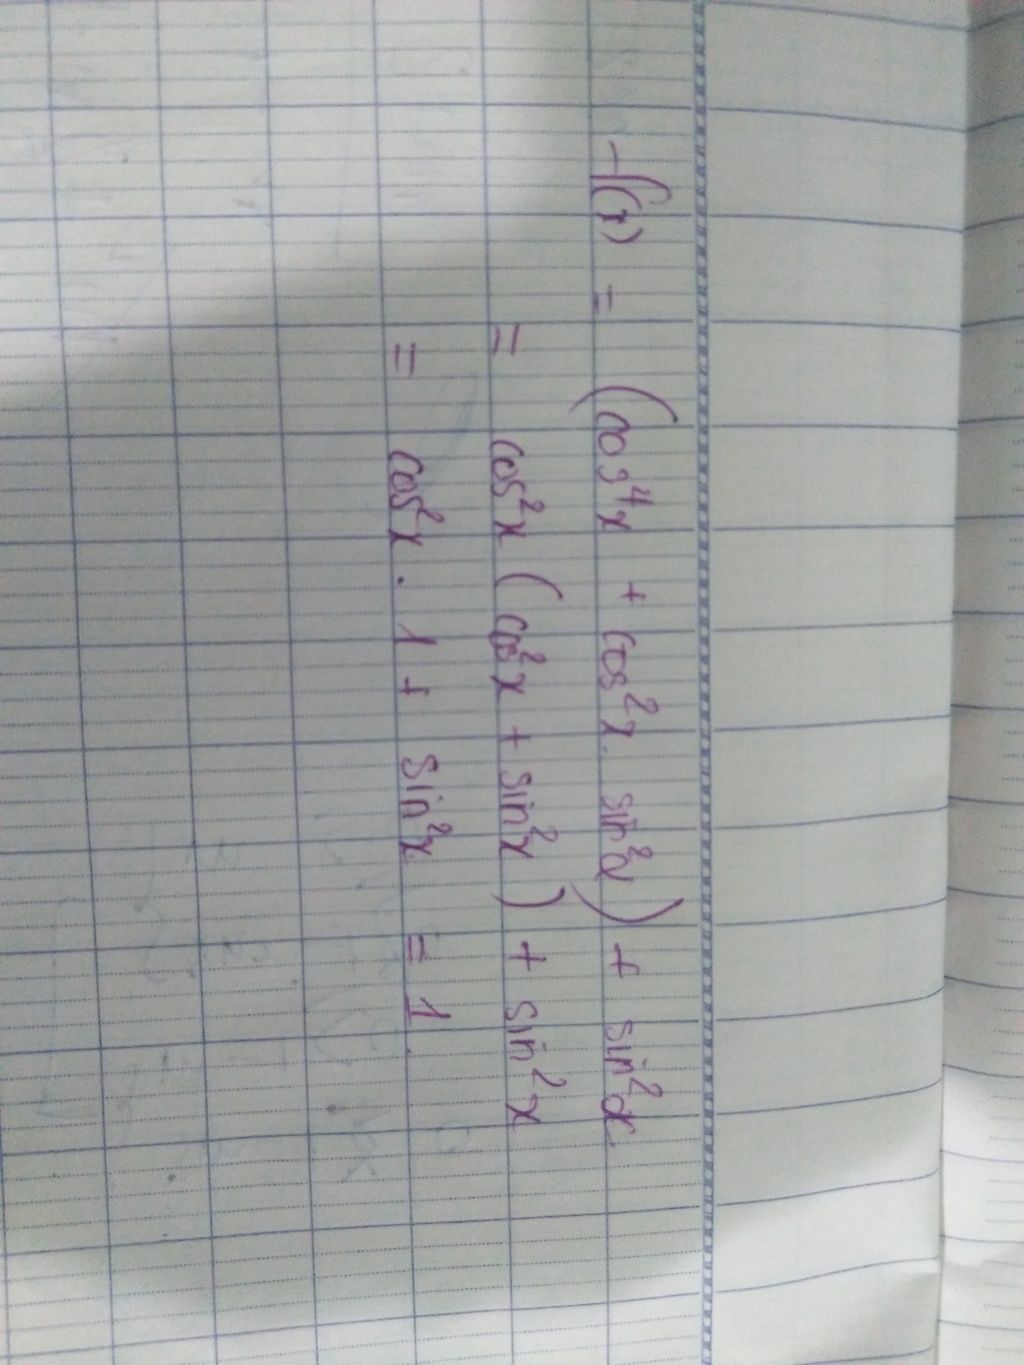 f(x) = (cos⁴x + cos²x. sin²x) + sin²x.
= cos²x (cos²x + sin²x) + sin²x
= cos²x . 1 + sin²x = 1.